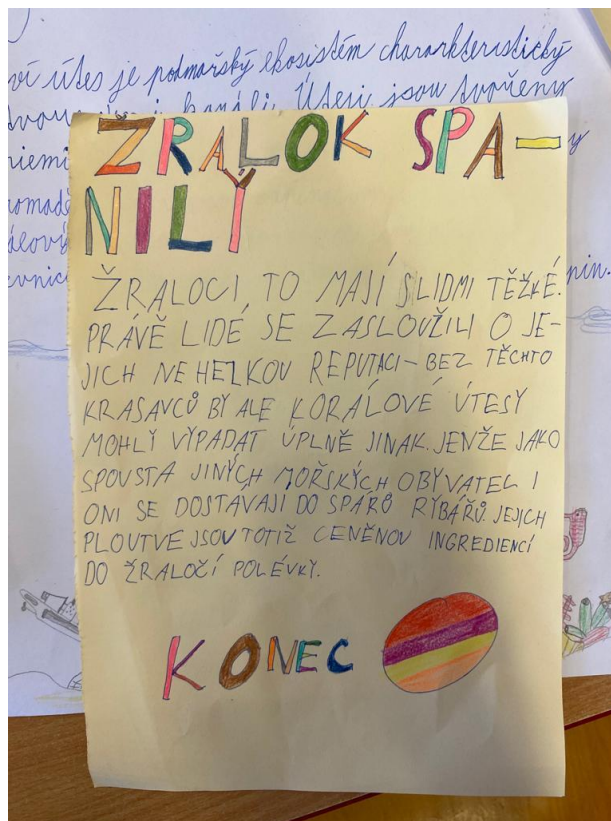 ví útes je podmořský ekosistém chararkteristický
Útesi jsou tvořeny
ŽRALOK SPA-
NILÝ
ŽRALOCI, TO MAJÍ SLIDMI TĚŽKÉ.
PRÁVĚ LIDÉ SE ZASLOUŽILI O JE-
JICH NEHEZKOU REPUTACI-BEZ TĚCHTO
KRASAVCŮ BY ALE KORÁLOVÉ ÚTESY
MOHLY VYPADAT ÚPLNĚ JINAK. JENŽE JAKO
SPOUSTA JINÝCH MOŘSKÝCH OBYVATEL I
ONI SE DOSTÁVAJÍ DO SPÁRŮ RYBÁŘŮ. JEJICH
PLOUTVE JSOU TOTIŽ CENĚNOU INGREDIENCÍ
DO ŽRALOČÍ POLÉVKY.
KONEC